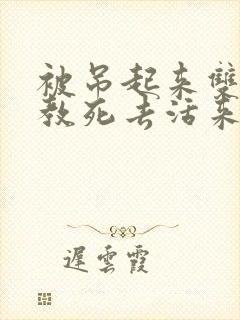 被吊起来雙
教死去活来
遲雲霞